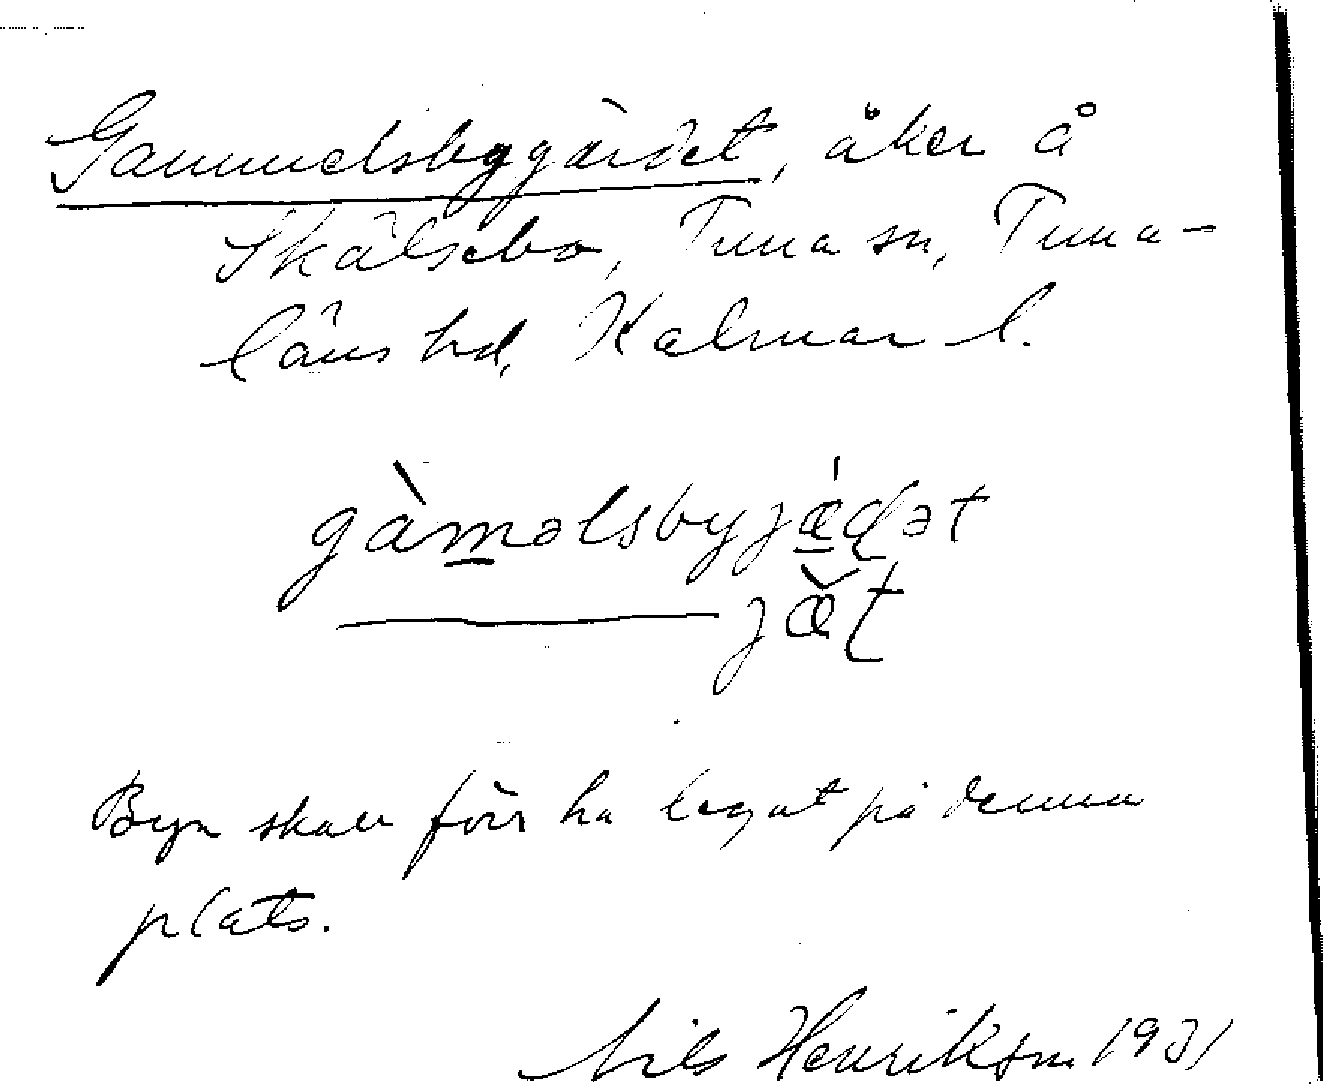 Gammelsbygärdet, åker å
Skälsebo, Tuna sn, Tuna-
läns hd, Kalmar l.
gàm̲əlsbyjǽ̲ɖət
——— jæ̌ʈ
Byn skall förr ha legat på denna
plats.
Nils Henrikson 1931